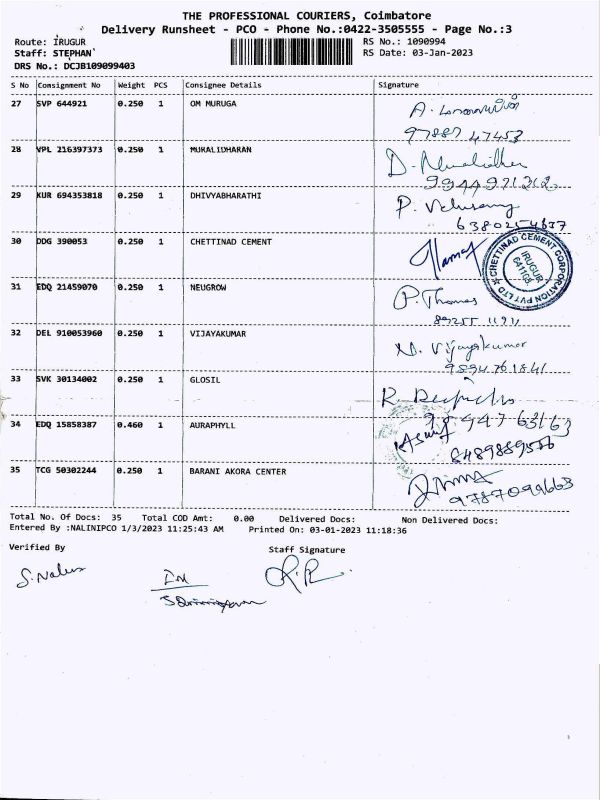 THE PROFESSIONAL COURIERS, Coimbatore
Delivery Runsheet - PCO - Phone No.:0422-3505555 - Page No.:3
Route: IRUGUR RS No.: 1090994
Staff: STEPHAN RS Date: 03-Jan-2023
DRS No.: DCJB109099403
S No Consignment No Weight PCS Consignee Details Signature
27 SVP 644921 0.250 1 OM MURUGA
97887 47453
28 VPL 216397373 0.250 1 MURALIDHARAN D. Muralidharan
9944971212
29 KUR 694353818 0.250 1 DHIVYABHARATHI P. Velusamy
6380254637
30 DDG 390053 0.250 1 CHETTINAD CEMENT
CHETTINAD CEMENT CORPORATION PVT LTD
IRUGUR
641103
31 EDQ 21459070 0.250 1 NEUGROW P. Thomas
89255 1121
32 DEL 910053960 0.250 1 VIJAYAKUMAR N. Vijayakumar
9894761841
33 SVK 30134002 0.250 1 GLOSIL
34 EDQ 15858387 0.460 1 AURAPHYLL
8489889556
35 TCG 50302244 0.250 1 BARANI AKORA CENTER
9787099663
Total No. Of Docs: 35 Total COD Amt: 0.00 Delivered Docs: Non Delivered Docs:
Entered By :NALINIPCO 1/3/2023 11:25:43 AM Printed On: 03-01-2023 11:18:36
Verified By Staff Signature